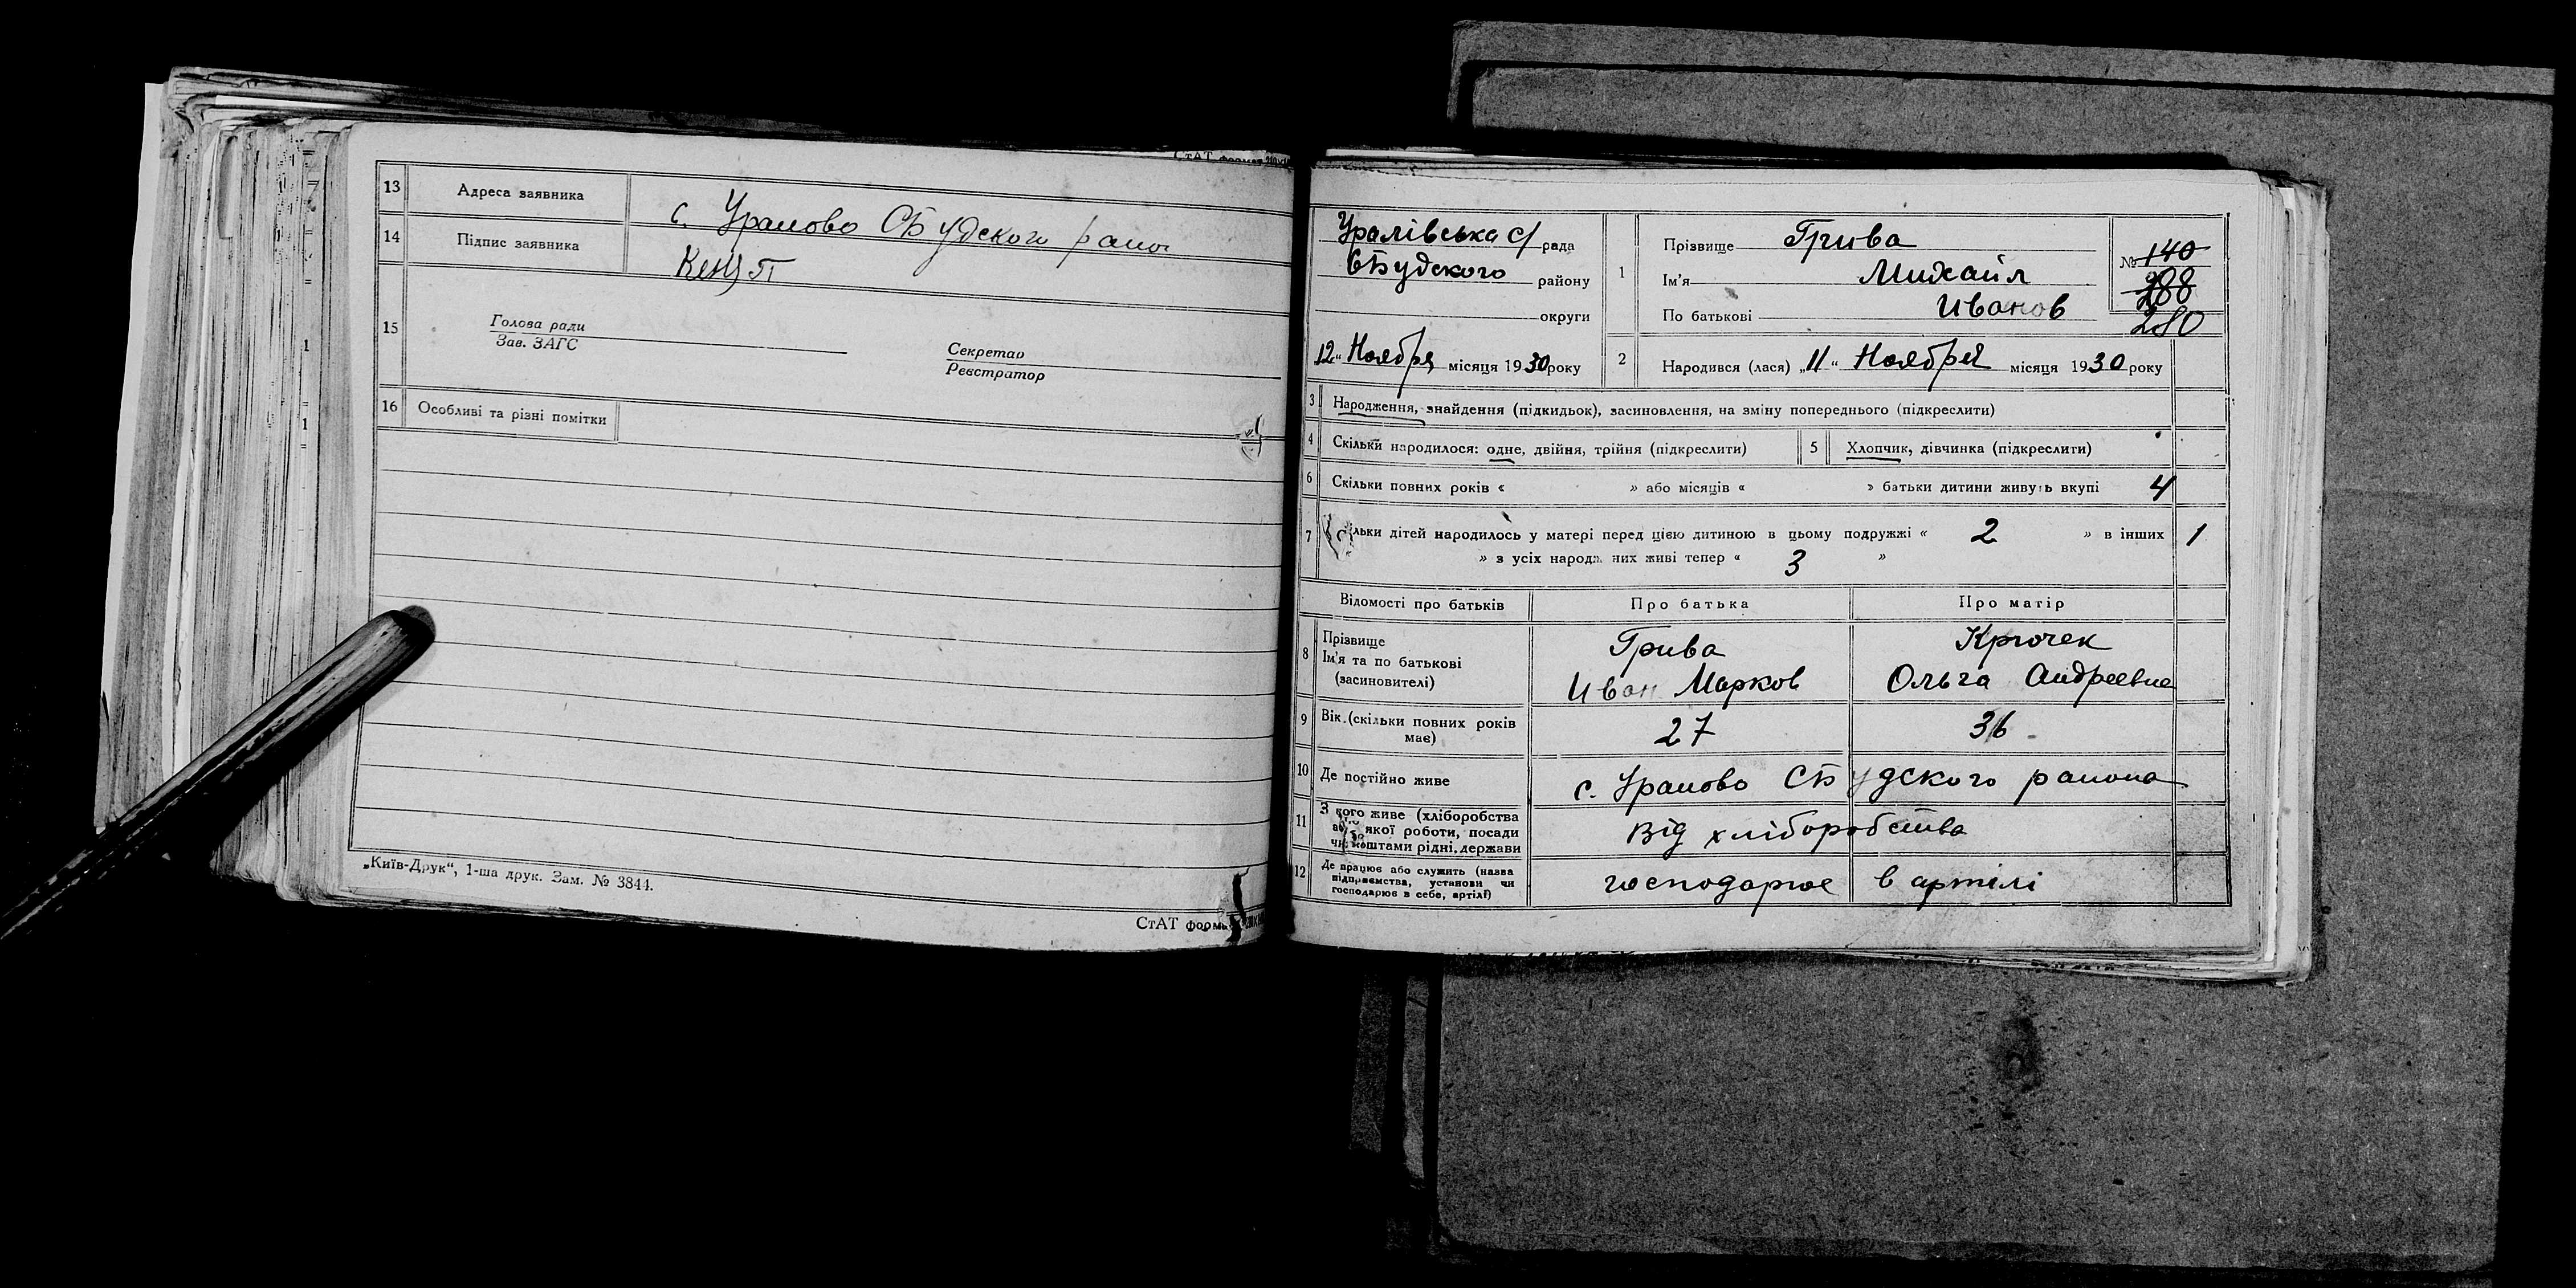 СтАТ формат 210×
13 Адреса заявника с. Уралово СБудского район
14 Підпис заявника
15 Голова ради
Зав. ЗАГС
Секретар
Реєстратор
16 Особливі та різні помітки
„Київ-Друк“, 1-ша друк. Зам. № 3844.
СтАТ форма
Уралівська с/ рада
СБудского району
округи
12 „ Ноября місяця 1930 року
1 Прізвище Грива
Ім'я Михаил
По батькові Иванов
№ 140
288
280
2 Народився (лася) „11“ Ноября місяця 1930 року
3 Народження, знайдення (підкидьок), засиновлення, на зміну попереднього (підкреслити)
4 Скільки народилося: одне, двійня, трійня (підкреслити)
5 Хлопчик, дівчинка (підкреслити)
6 Скільки повних років « » або місяців « » батьки дитини живуть вкупі 4
7 Скільки дітей народилось у матері перед цією дитиною в цьому подружжі « 2 » в інших 1
» з усіх народжених живі тепер « 3 »
Відомості про батьків Про батька Про матір
8 Прізвище Грива Крючек
Ім'я та по батькові
(засиновителі) Иван Марков Ольга Андреевна
9 Вік (скільки повних років
має) 27 36
10 Де постійно живе с. Уралово СБудского района
11 З кого живе (хліборобства
або якої роботи, посади
чи коштами рідні, держави від хліборобства
12 Де працює або служить (назва
підприємства, установи чи
господарює в себе, артілі) господарює в артілі